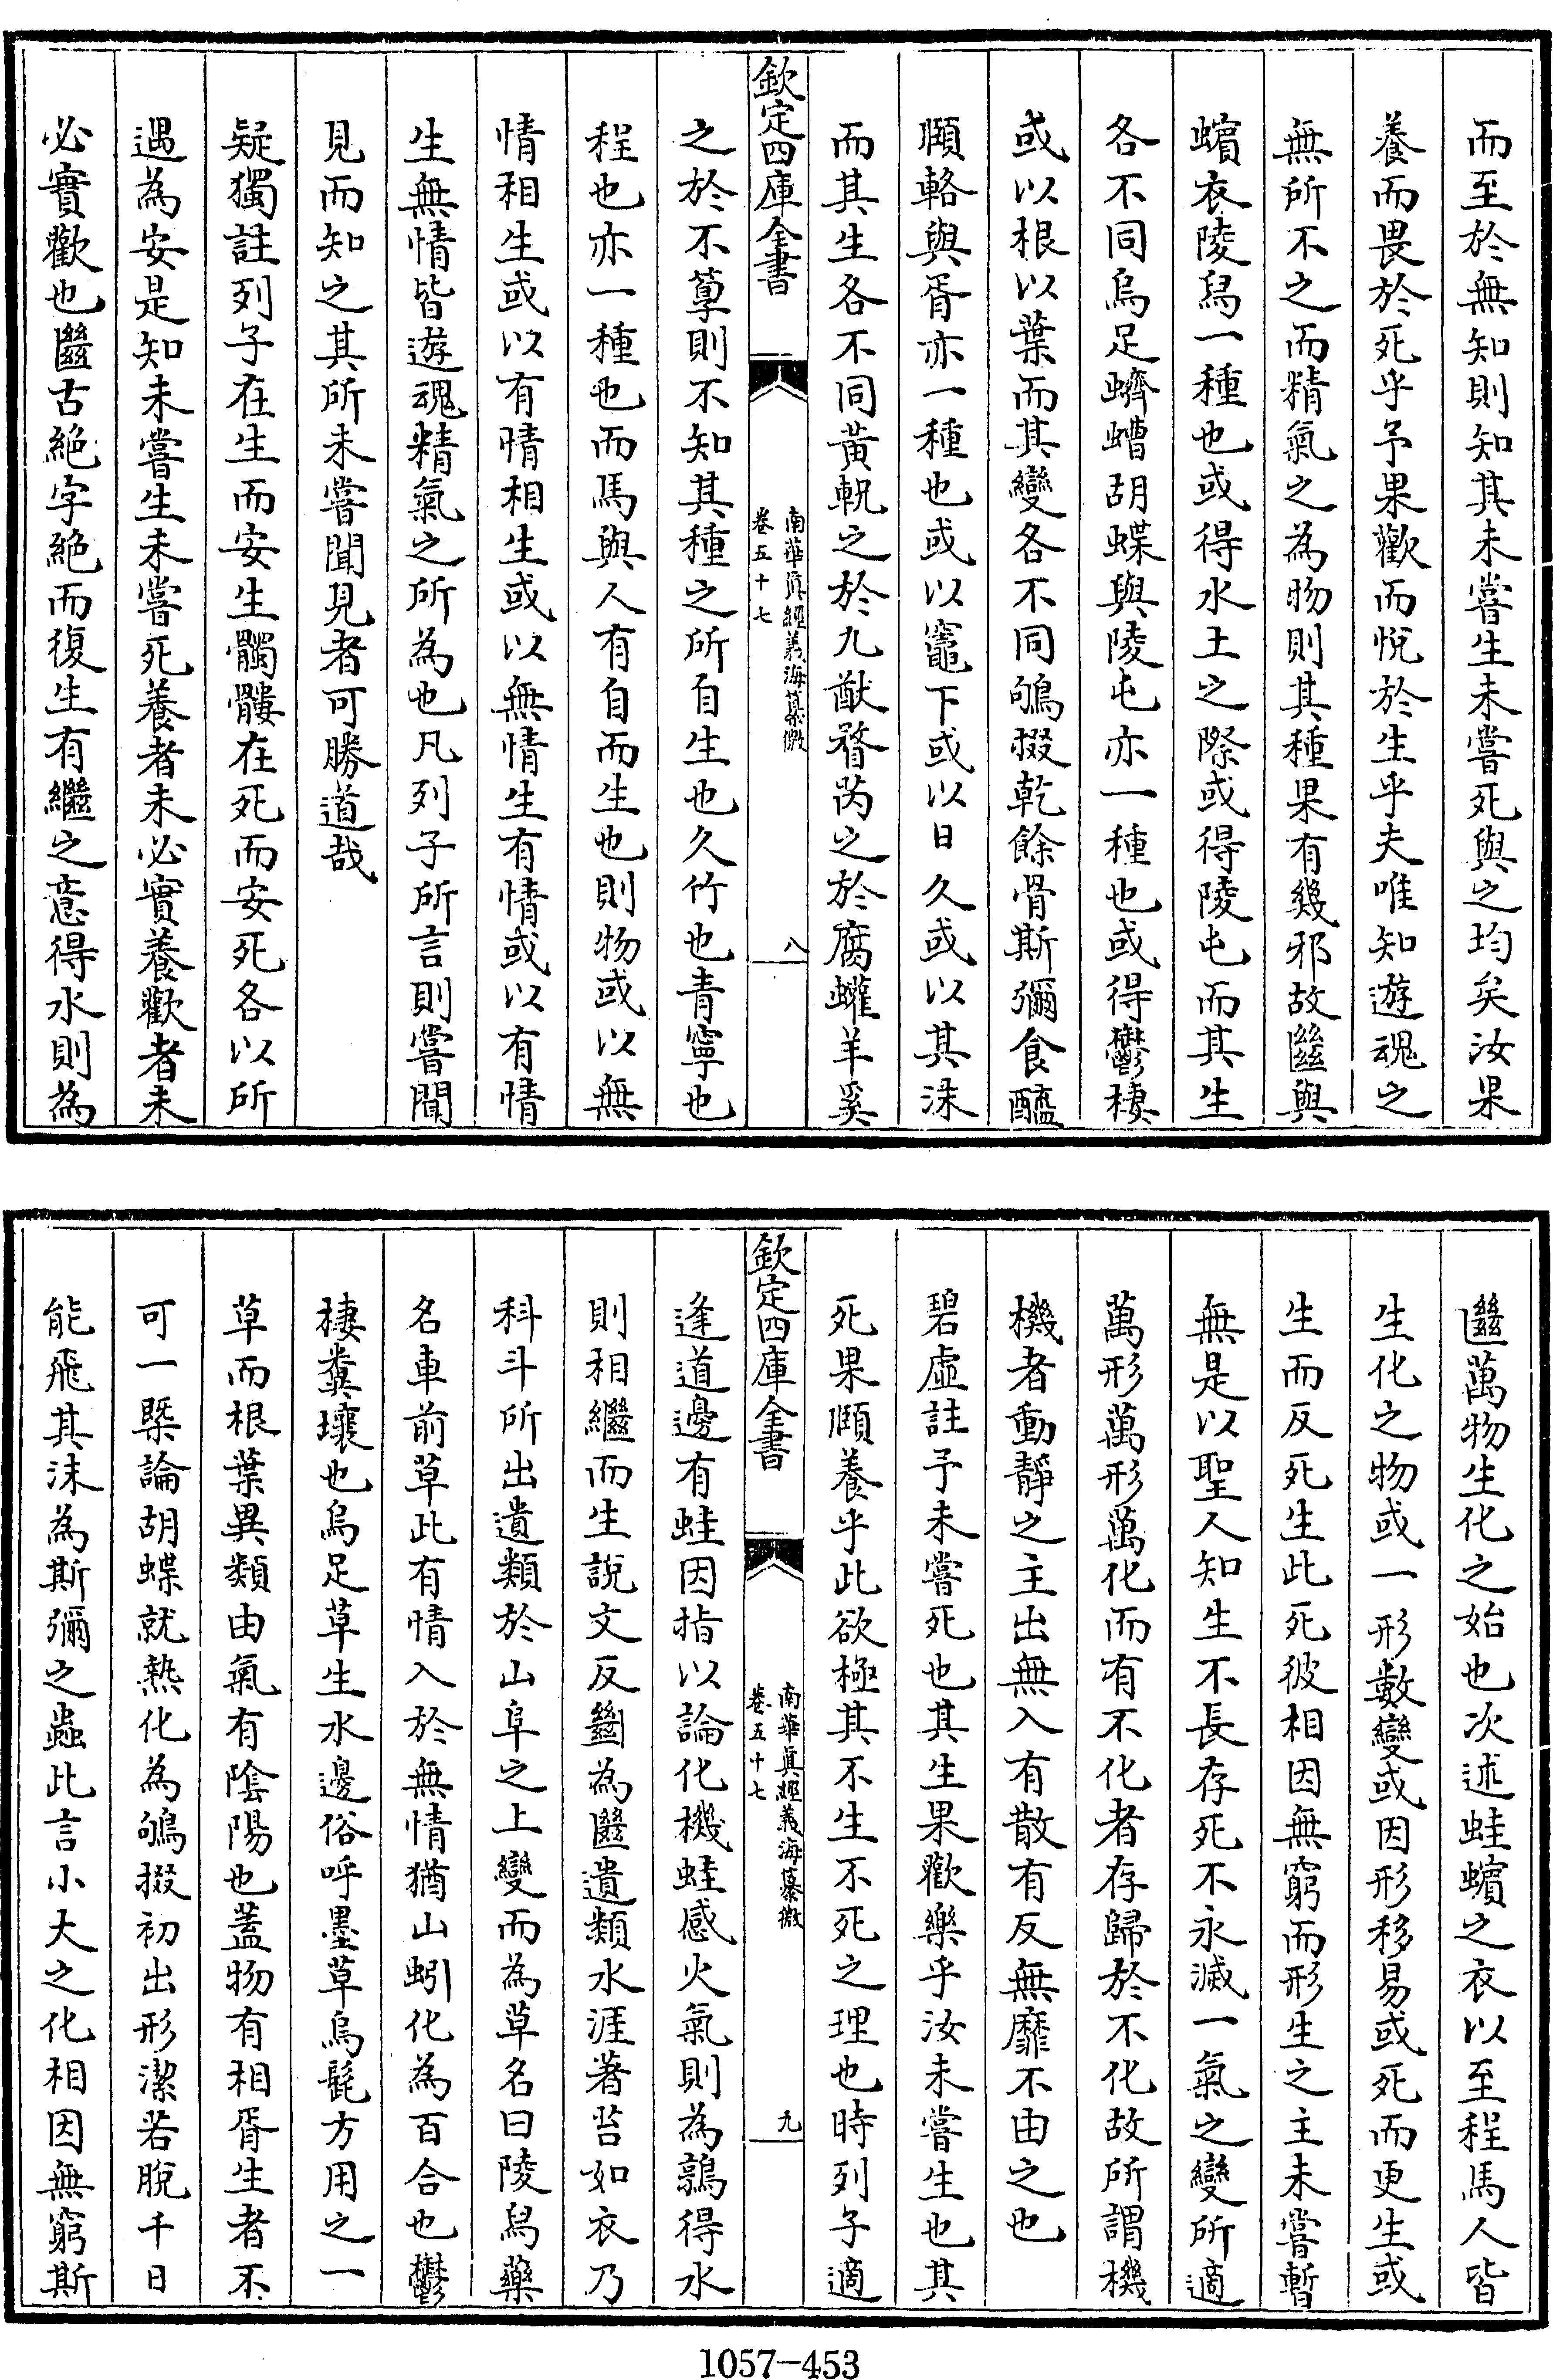 而至於無知則知其未嘗生未嘗死與之均矣汝果
養而畏於死乎予果歡而悅於生乎夫唯知遊魂之
無所不之而精氣之為物則其種果有幾邪故㡭與
蠙衣陵舄一種也或得水土之際或得陵屯而其生
各不同烏足蠐螬胡蝶與陵屯亦一種也或得鬱棲
或以根以葉而其變各不同鴝掇乾餘骨斯彌食醯
頤輅與胥亦一種也或以竈下或以日久或以其沫
而其生各不同黃軦之於九猷瞀芮之於腐蠸羊奚
欽定四庫全書
南華真經義海纂微
卷五十七
八
之於不䔳則不知其種之所自生也久竹也青寧也
程也亦一種也而馬與人有自而生也則物或以無
情相生或以有情相生或以無情生有情或以有情
生無情皆遊魂精氣之所為也凡列子所言則嘗聞
見而知之其所未嘗聞見者可勝道哉
疑獨註列子在生而安生髑髏在死而安死各以所
遇為安是知未嘗生未嘗死養者未必實養歡者未
必實歡也㡭古絕字絕而復生有繼之意得水則為
㡭萬物生化之始也次述蛙蠙之衣以至程馬人皆
生化之物或一形數變或因形移易或死而更生或
生而反死生此死彼相因無窮而形生之主未嘗暫
無是以聖人知生不長存死不永滅一氣之變所適
萬形萬形萬化而有不化者存歸於不化故所謂機
機者動靜之主出無入有散有反無靡不由之也
碧虛註予未嘗死也其生果歡樂乎汝未嘗生也其
死果頤養乎此欲極其不生不死之理也時列子適
欽定四庫全書
南華真經義海纂微
卷五十七
九
逢道邊有蛙因指以論化機蛙感火氣則為鶉得水
則相繼而生說文反㡭為㡭遺類水涯著苔如衣乃
科斗所出遺類於山阜之上變而為草名曰陵舄藥
名車前草此有情入於無情猶山蚓化為百合也鬱
棲糞壤也烏足草生水邊俗呼墨草烏髭方用之一
草而根葉異類由氣有陰陽也蓋物有相胥生者不
可一槩論胡蝶就熱化為鴝掇初出形潔若脫千日
能飛其沫為斯彌之蟲此言小大之化相因無窮斯
1057-453